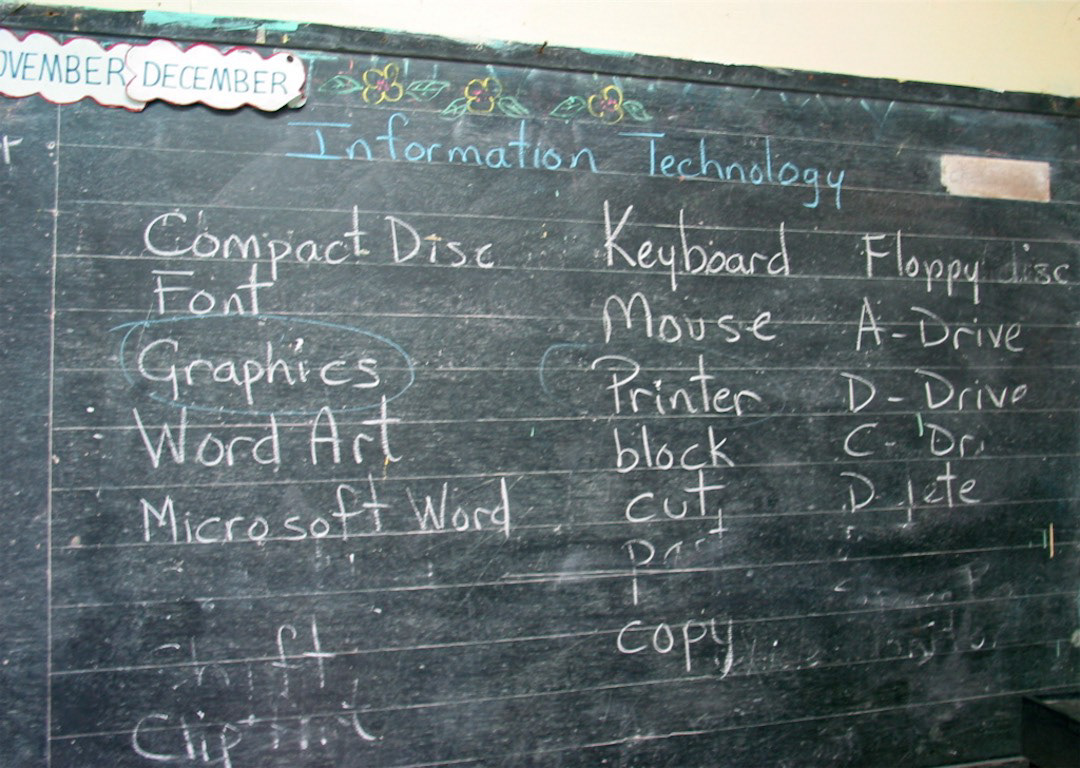 DECEMBER
Information Technology
Compact Disc
Font
Graphics
Word Art
Microsoft Word
Keyboard
Mouse
Printer
block
cut
copy
Floppy disc
A-Drive
D-Drive
C-